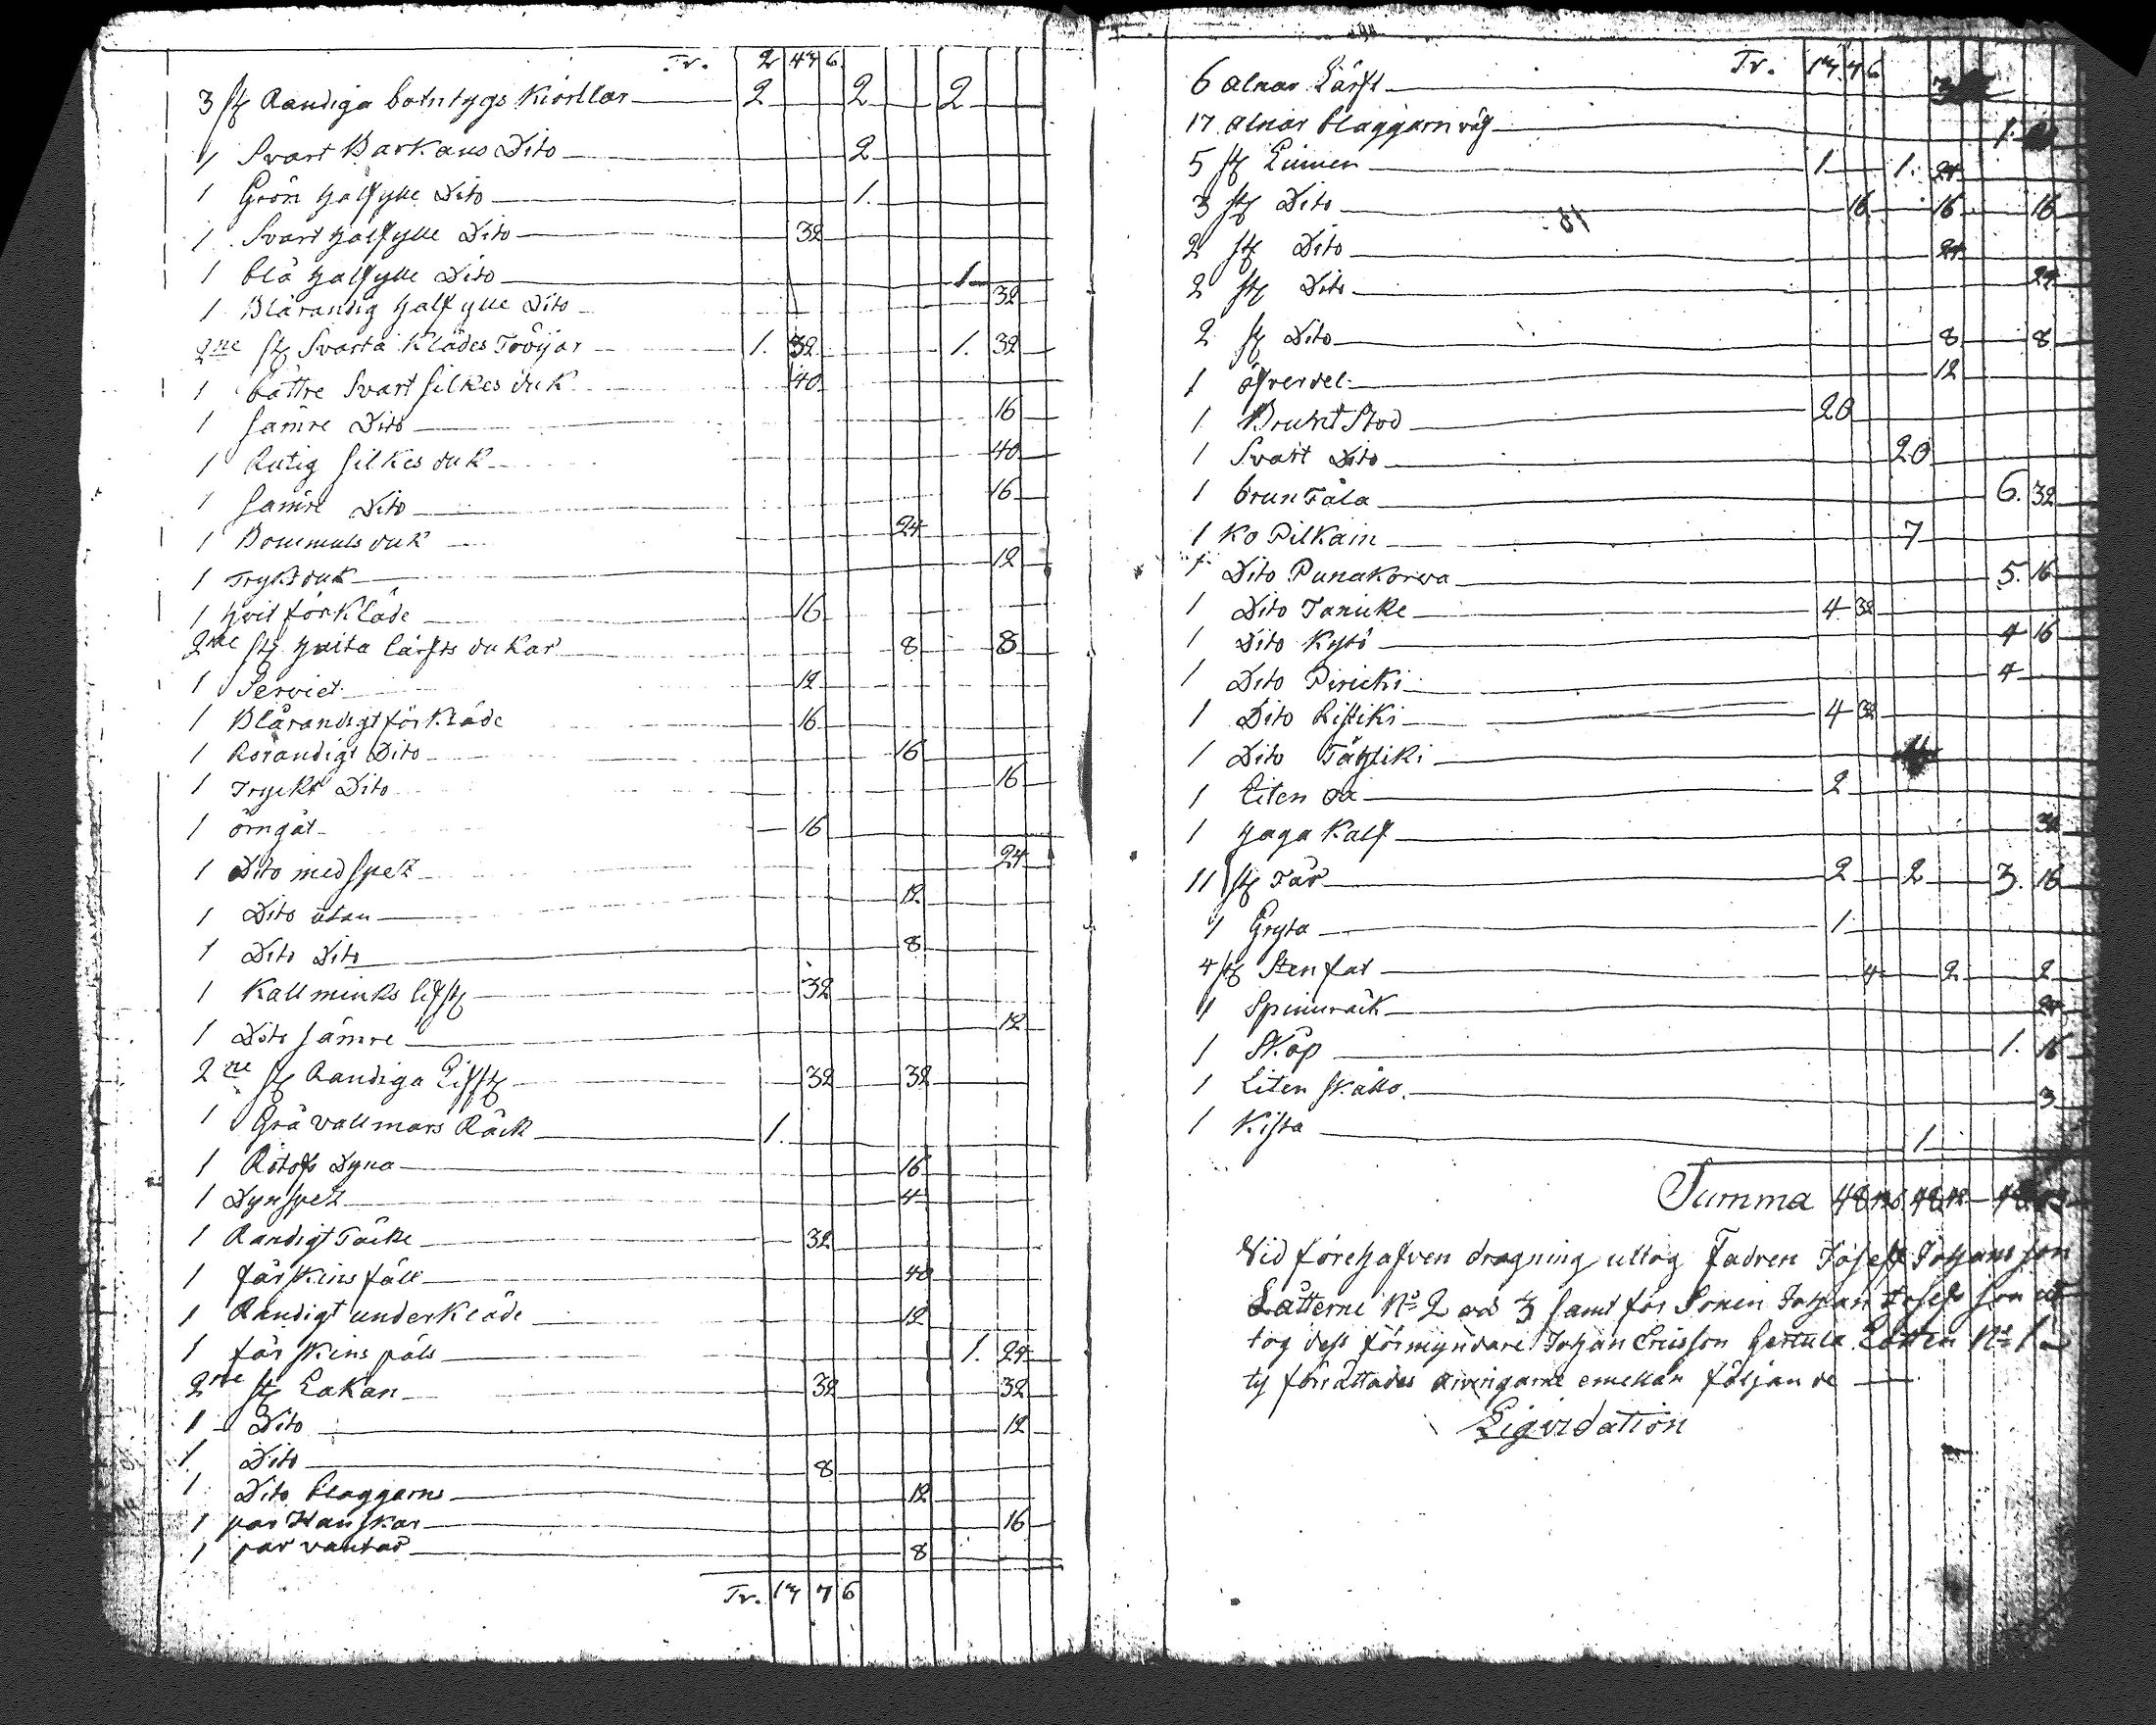 Tr. 2 47 6
3 st Randiga botntygs Kiortlar 2 2 2
1 Svart Barkans Dito 2
1 Grön halfylle Dito 1.
1 Svart halfylle Dito 32
1 blå halfylle Dito 1
1 Blårandig halfylle Dito 32
2ne st Svarta Klädes Tröijor 1. 32 1. 32
1 bättre Svart silkes duk 40
1 sämre Dito 16
1 Rutig silkes duk 40
1 sämre Dito 16
1 Bommuls duk 24
1 Tryktduk 12
1 hvit förkläde 16
2ne st hvita lärfts dukar 8 8
1 Serviet 12
1 Blårandigt förkläde 16
1 Rörandigt Dito 16
1 Tryckt Dito 16
1 örngåt 16
1 Dito med spetz 24
1 Dito utan 12
1 Dito Dito 8
1 Kallminks lifst 32
1 Dito sämre 12
2ne st Randiga Lifst 32 32
1 Grå vallmars Råck 1.
1 Dyna 16
1 Dynspetz 4
1 Randigt Täcke 32
1 fårskins fäll 40
1 Randigt underkläde 12
1 fårskins päls 1. 24
2ne st Lakan 32 32
1 Dito 12
1 Dito 8
1 Dito blaggarns 12
1 par Hanskar 16
1 par vantar 8
Tr. 17 7 6
Tr. 17. 7 6
6 alnar Lärft 3
17 alnar blaggarn väf 1.
5 st Linnen 1 1. 24
3 st Dito 16 16 16
2 st Dito 24
2 st Dito 24
2 st Dito 8 8
1 öfverdel 12
1 Brunt Stod 20
1 Svart Dito 20
1 brun Fåla 6. 32
1 Ko Pilkain 7
1 Dito Punakorwa 5. 16
1 Dito Tanicke 4 32
1 Dito Kytö 4 16
1 Dito Piricki 4
1 Dito Ristiki 4 32
1 Dito Tähtiki
1 Liten oxe 2
1 haga Kalf 32
11 st Får 2 2 3. 16
1 Gryta 1
4 st Stenfat 4 2 2
1 Spinnråck 24
1 Skåp 1. 16
1 Liten skåtto 3
1 Kista 1
Summa 48
Vid förehafven dragning uttog Fadren Josef Johansson
Låtterne No 2 och 3 samt för Sonen Johan Josefsson ut
tog dess förmyndare Johan Ericsson Gertula Lotten No 1
ty förrättades arvingarne emellan följande
Liqvidation